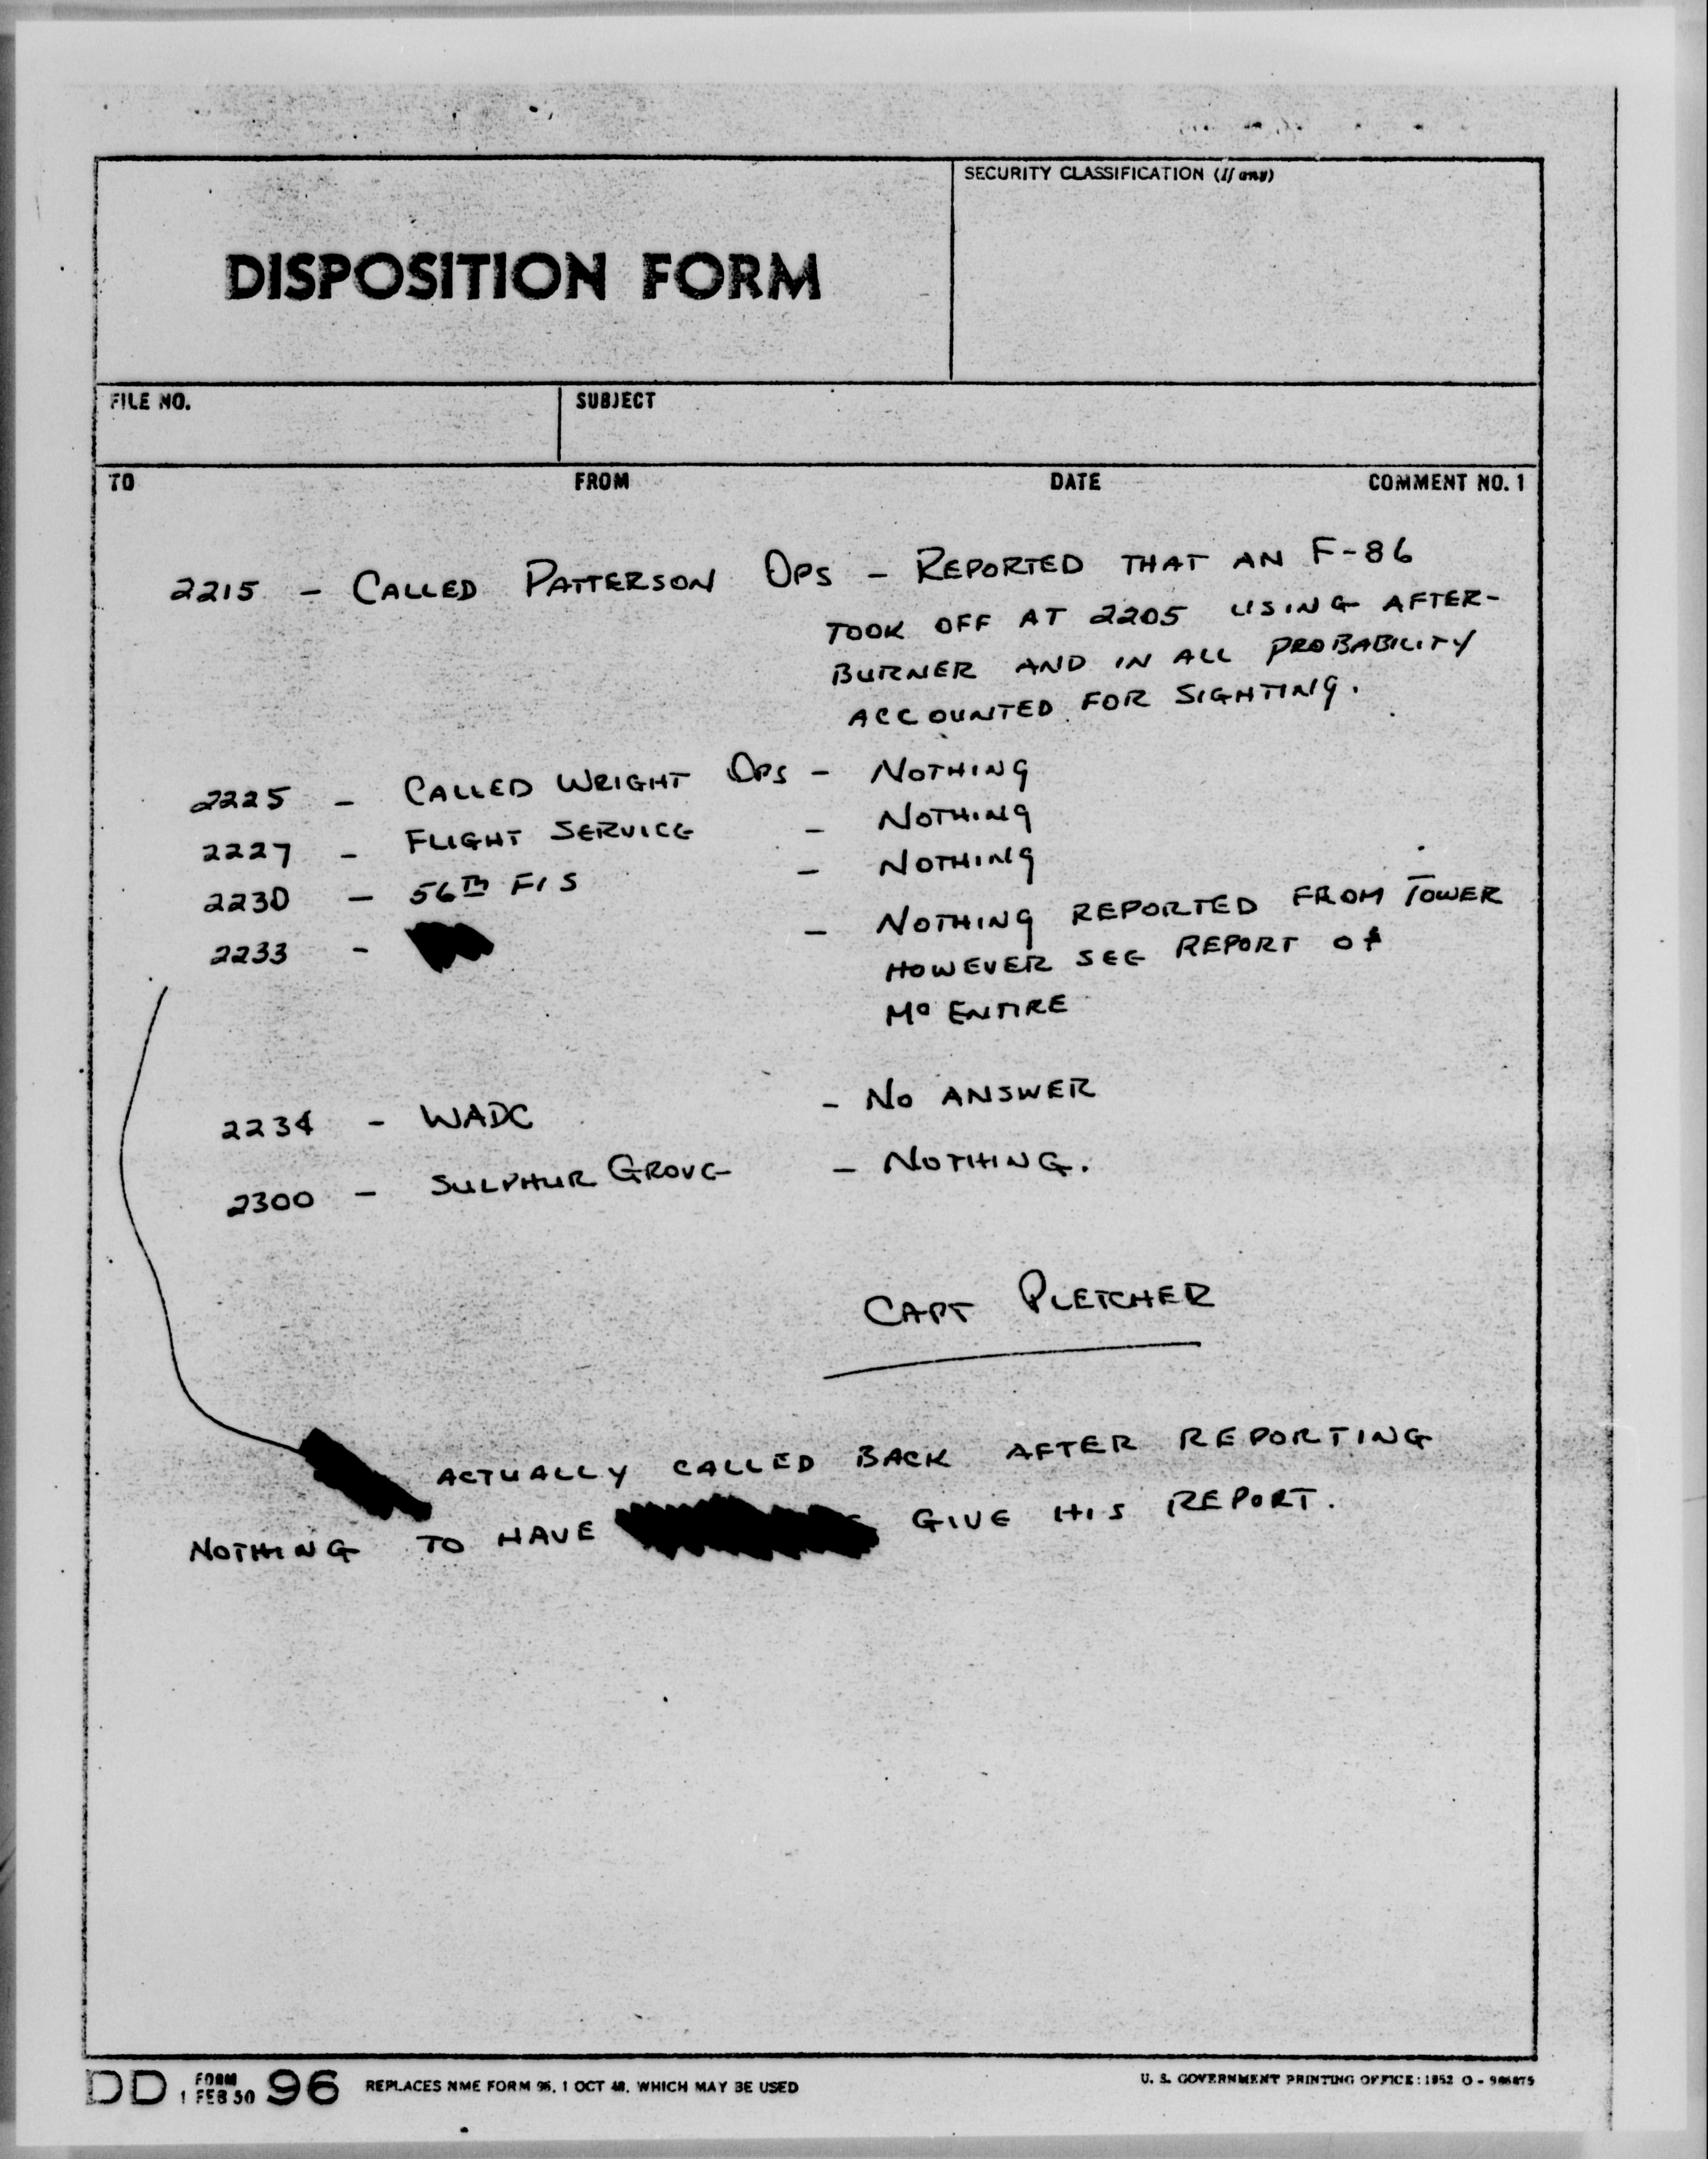 SECURITY CLASSIFICATION (If any)
DISPOSITION FORM
FILE NO. SUBJECT
TO FROM DATE COMMENT NO. 1
2215 - CALLED PATTERSON OPS - REPORTED THAT AN F-86
TOOK OFF AT 2205 USING AFTER-
BURNER AND IN ALL PROBABILITY
ACCOUNTED FOR SIGHTING.
2225 - CALLED WRIGHT OPS - NOTHING
2227 - FLIGHT SERVICE - NOTHING
2230 - 56TH FIS - NOTHING
2233 - - NOTHING REPORTED FROM TOWER
HOWEVER SEE REPORT of
Mc ENTIRE
2234 - WADC - NO ANSWER
2300 - SULPHUR GROVE - NOTHING.
CAPT PLETCHER
ACTUALLY CALLED BACK AFTER REPORTING
NOTHING TO HAVE GIVE HIS REPORT.
DD FORM 1 FEB 50 96 REPLACES NME FORM 96, 1 OCT 48, WHICH MAY BE USED U. S. GOVERNMENT PRINTING OFFICE: 1952 O -